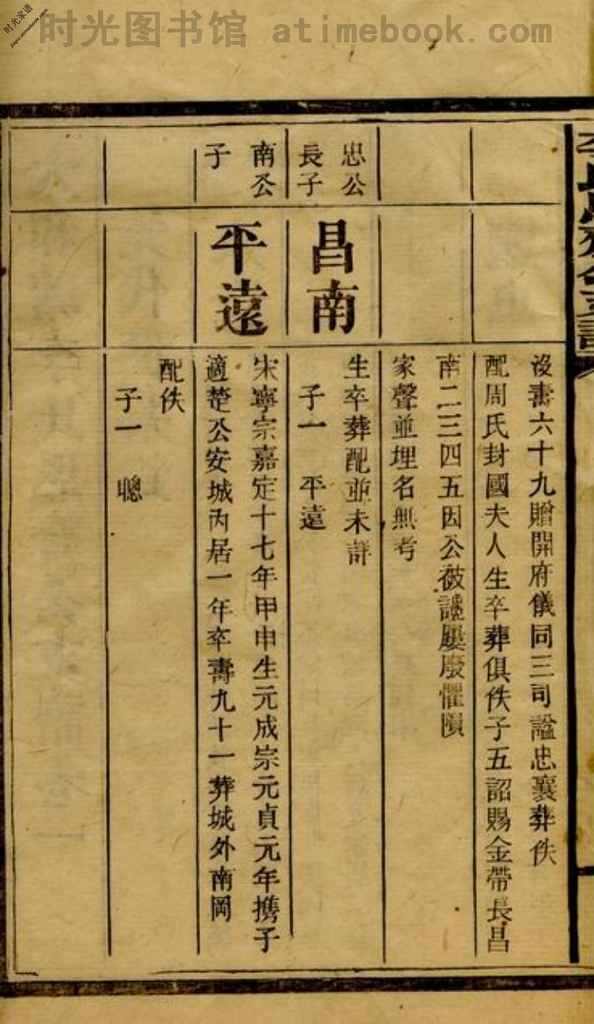 时光家谱
www.atimebook.com
时光图书馆 atimebook.com
沒壽六十九贈開府儀同三司謚忠襄葬佚
配周氏封國夫人生卒葬俱佚子五詔賜金帶長昌
南二三四五因公被譴屢廢懼隕
家聲並埋名無考
忠公
長子
昌南
生卒葬配並未詳
子一 平遠
南公
子
平遠
宋寧宗嘉定十七年甲申生元成宗元貞元年携子
適楚公安城內居一年卒壽九十一葬城外南岡
配佚
子一 聰